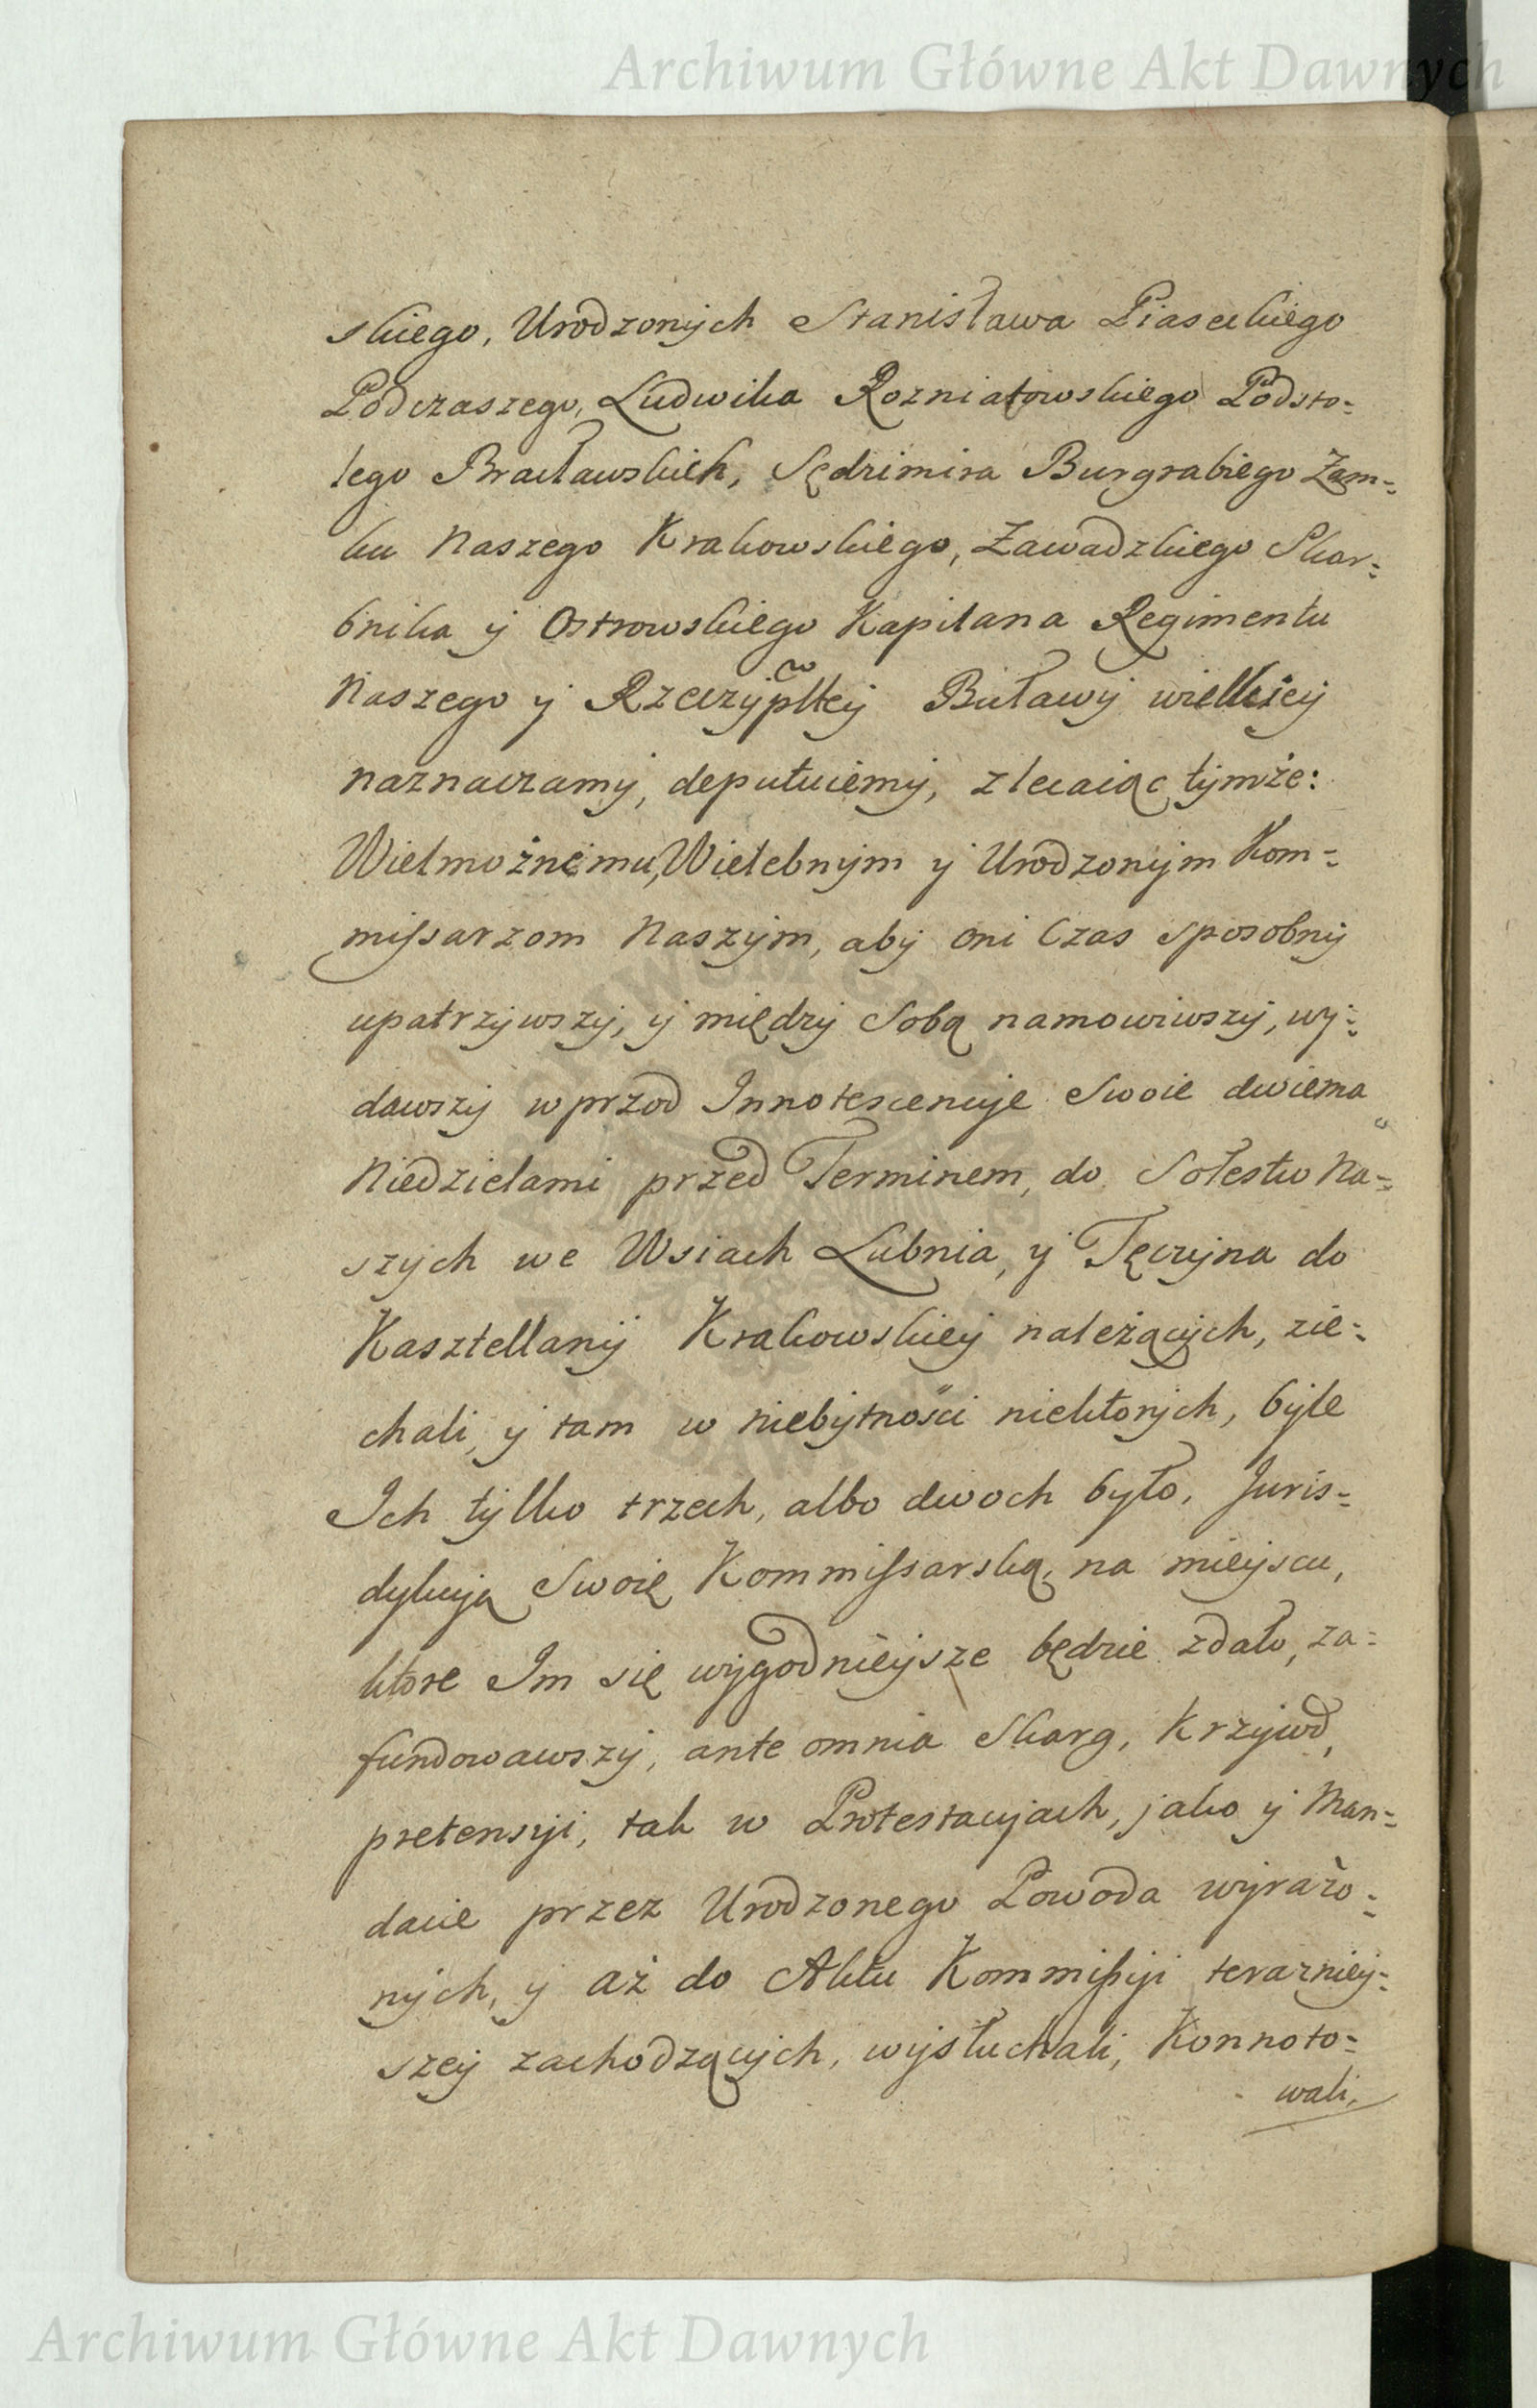 Archiwum Główne Akt Dawnych
skiego, Urodzonych Stanisława Piaseckiego
Podczaszego, Ludwika Rozniatowskiego Podsto=
lego Bracławskich, Sędzimira Burgrabiego Zam=
ku Naszego Krakowskiego, Zawadzkiego Skar=
bnika y Ostrowskiego Kapitana Regimentu
Naszego y Rzeczypltey Buławy wielkiey
naznaczamy, deputuiemy, zlecaiąc tymże:
Wielmożnemu, Wielebnym y Urodzonym Kom=
missarzom Naszym, aby oni Czas sposobny
upatrzywszy, y między Sobą namowiwszy, wy=
dawszy wprzod Innotescencye Swoie dwiema
Niedzielami przed Terminem, do Sołestw Na=
szych we Wsiach Lubnia, y Tęczyna do
Kasztellanij Krakowskiey należących, zie=
chali, y tam w niebytności niektorych, byle
Ich tylko trzech, albo dwoch było, Juris=
dykcyą Swoię Kommissarską, na mieyscu,
ktore Im się wygodnieysze będzie zdało, za=
fundowawszy, ante omnia Skarg, Krzywd,
pretensyi, tak w Protestacyach, jako y Man=
dacie przez Urodzonego Powoda wyrażo=
nych, y aż do Aktu Kommissyi terazniey=
szey zachodzących, wysłuchali, Konnoto=
wali,
Archiwum Główne Akt Dawnych